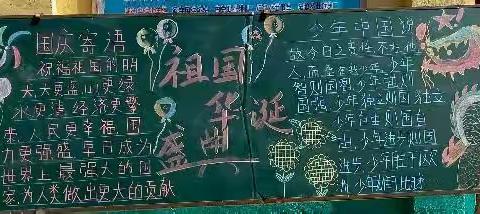 国庆寄语
祝福祖国的明
天天更蓝山更绿
水更清经济更繁
荣人民更幸福国
力更强盛早日成为
世界上最强大的国
家为人类做出更大的贡献
祖国
华诞
盛典
少年中国说
故今日之责任不在他
人而全在我少年少年
智则国智少年强则
国强少年独立则国独立
少年自由则国自
由少年进步则国
进步少年胜于欧